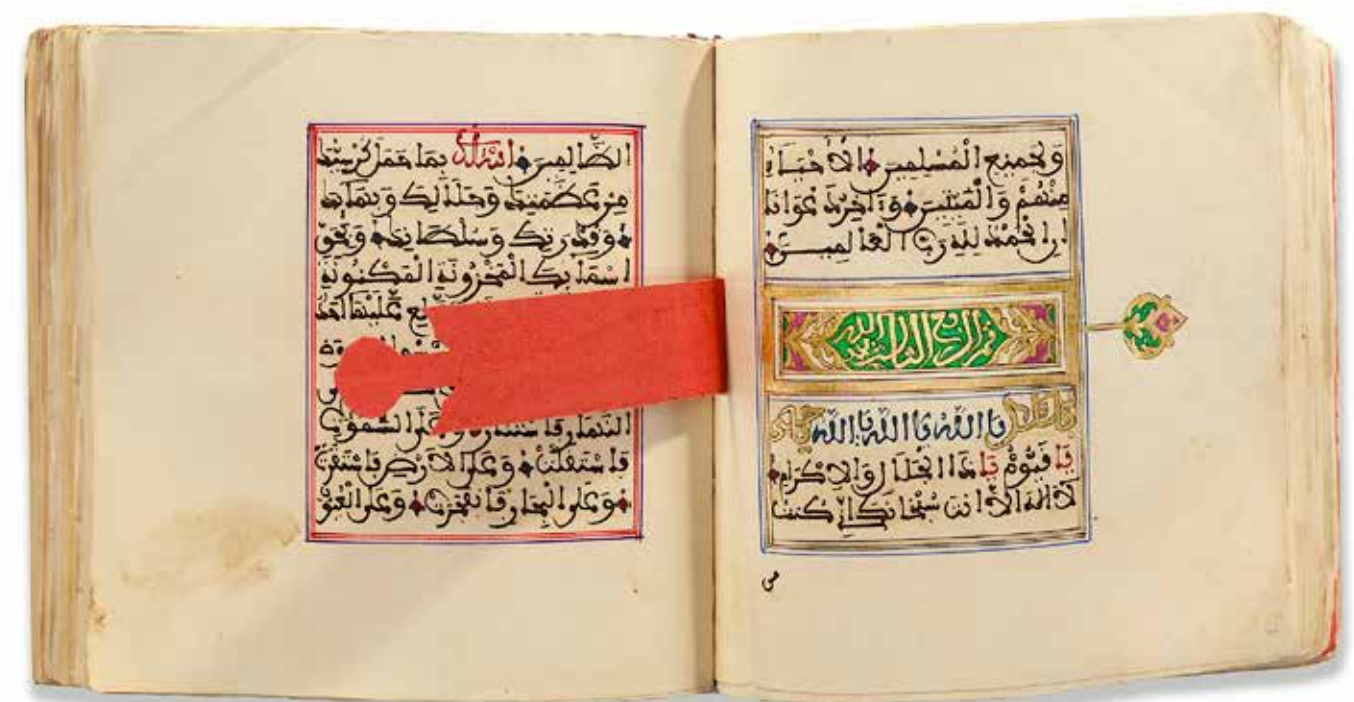 وَلجَمِيعِ الْمُسْلِمِينَ الاَحْيَاءِ
مِنْهُمْ وَالْمَيِّتِينَ وَءَاخِرُ دَعْوَانَا
أَنِ الْحَمْدُ لِلَّهِ رَبِّ الْعَالَمِينَ
الربع الثالث
يَا اَللَّهُ يَا اَللَّهُ يَا اَللَّهُ يَا حَيُّ
يَا قَيُّومُ يَا ذَا الْجَلَالِ وَالاِكْرَامِ
لَا إِلَهَ إِلَّا أَنْتَ سُبْحَانَكَ إِنِّي كُنْتُ
من
الظَّالِمِينَ أَسْئَلُكَ بِمَا حَمَلَ كُرْسِيُّكَ
مِنْ عَظَمَتِكَ وَجَلَالِكَ وَبَهَائِكَ
وَقُدْرَتِكَ وَسُلْطَانِكَ وَبِحَقِّ
اَسْمَائِكَ الْمَخْزُونَةِ الْمَكْنُونَةِ
عَلَيْهَا أَحَدٌ
النَّهَارِ فَاسْتَنَارَ وَعَلَى السَّمَوَاتِ
فَاسْتَقَلَّتْ وَعَلَى الاَرْضِ فَاسْتَقَرَّتْ
وَعَلَى الْبِحَارِ فَانْفَجَرَتْ وَعَلَى الْعُيُونِ